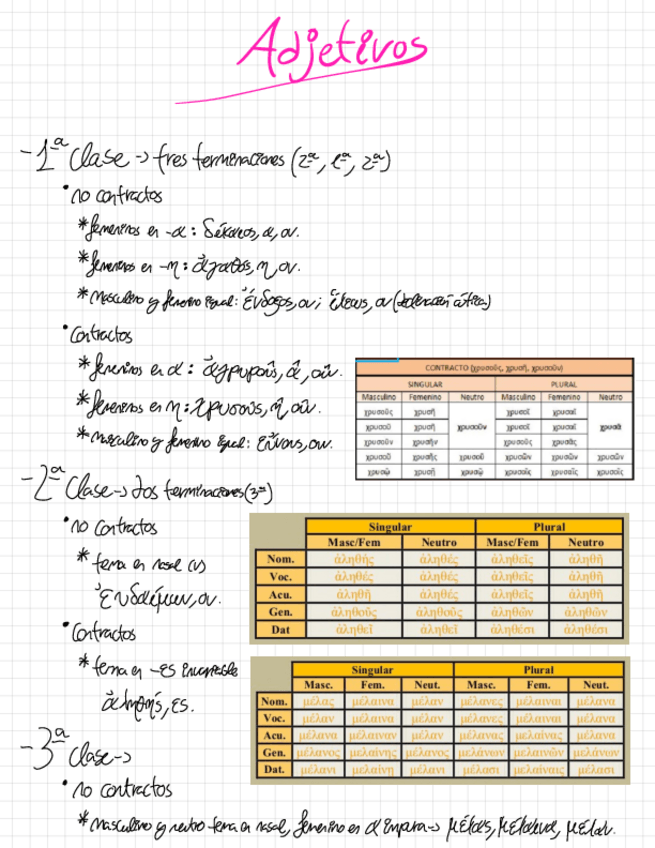 Adjetivos
-1ª Clase -> tres terminaciones (2ª, 1ª, 2ª)
• no contractos
* femeninos en -α: δίκαιος, α, ον.
* femeninos en -η: ἀγαθός, η, ον.
* masculino y femenino igual: ἔνδοξος, ον; ἵλεως, ων (declinación ática)
• Contractos
* femeninos en α: ἀργυροῦς, ᾶ, οῦν.
* femeninos en η: χρυσοῦς, ῆ, οῦν.
* masculino y femenino igual: εὔνους, ουν.
CONTRACTO (χρυσοῦς, χρυσῆ, χρυσοῦν)
SINGULAR PLURAL
Masculino Femenino Neutro Masculino Femenino Neutro
χρυσοῦς χρυσῆ χρυσοῦν χρυσοῖ χρυσαῖ χρυσᾶ
χρυσοῦ χρυσῆ χρυσοῖ χρυσαῖ
χρυσοῦν χρυσῆν χρυσοῦς χρυσᾶς
χρυσοῦ χρυσῆς χρυσοῦ χρυσῶν χρυσῶν χρυσῶν
χρυσῷ χρυσῇ χρυσῷ χρυσοῖς χρυσαῖς χρυσοῖς
-2ª Clase -> dos terminaciones (3ª)
• no contractos
* tema en nasal (ν)
εὐδαίμων, ον.
• Contractos
* tema en -ες invariable
ἀληθής, ές.
Singular Plural
Masc/Fem Neutro Masc/Fem Neutro
Nom. ἀληθής ἀληθές ἀληθεῖς ἀληθῆ
Voc. ἀληθές ἀληθές ἀληθεῖς ἀληθῆ
Acu. ἀληθῆ ἀληθές ἀληθεῖς ἀληθῆ
Gen. ἀληθοῦς ἀληθοῦς ἀληθῶν ἀληθῶν
Dat ἀληθεῖ ἀληθεῖ ἀληθέσι ἀληθέσι
Singular Plural
Masc. Fem. Neut. Masc. Fem. Neut.
Nom. μέλας μέλαινα μέλαν μέλανες μέλαιναι μέλανα
Voc. μέλαν μέλαινα μέλαν μέλανες μέλαιναι μέλανα
Acu. μέλανα μέλαιναν μέλαν μέλανας μελαίνας μέλανα
Gen. μέλανος μελαίνης μέλανος μελάνων μελαινῶν μελάνων
Dat. μέλανι μελαίνῃ μέλανι μέλασι μελαίναις μέλασι
-3ª Clase ->
• no contractos
* masculino y neutro tema en nasal, femenino en α impura -> μέλας, μέλαινα, μέλαν.